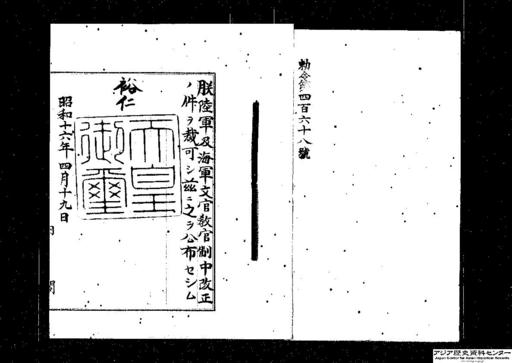 勅令第四百六十八號
朕陸軍及海軍文官教官制中改正
ノ件ヲ裁可シ茲ニ之ヲ公布セシム
裕仁
天皇御璽
昭和十六年四月十九日
内閣
アジア歴史資料センター
Japan Center for Asian Historical Records